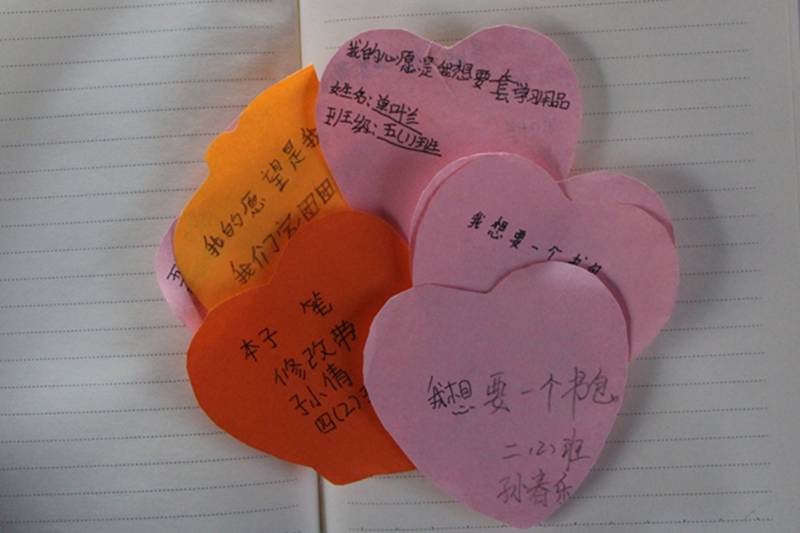 我的心愿是我想要套学习用品
姓名:单叶兰
班级:五(1)班
我的愿望是我
我们
我想要一个书包
本子 笔
修改带
孙小倩
四(2)
我想要一个书包。
二(2)班
孙春乐